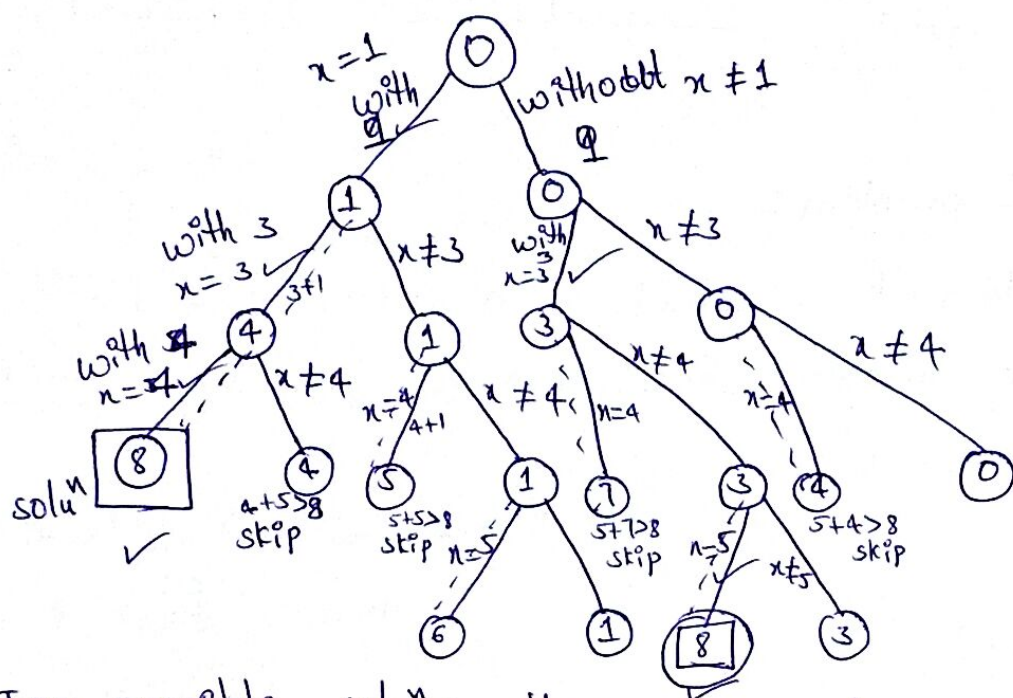 0
x = 1
with
1
without x ≠ 1
1
1
0
with 3
x = 3
3+1
x ≠ 3
with
3
x=3
x ≠ 3
4
1
3
0
with 4
x = 4
x ≠ 4
x=4
4+1
x ≠ 4
x=4
x ≠ 4
x=4
x ≠ 4
8
soluⁿ
4
4+5>8
skip
5
5+5>8
skip
1
7
5+7>8
skip
3
4
5+4>8
skip
0
x=5
x=5
x≠5
6
1
8
3